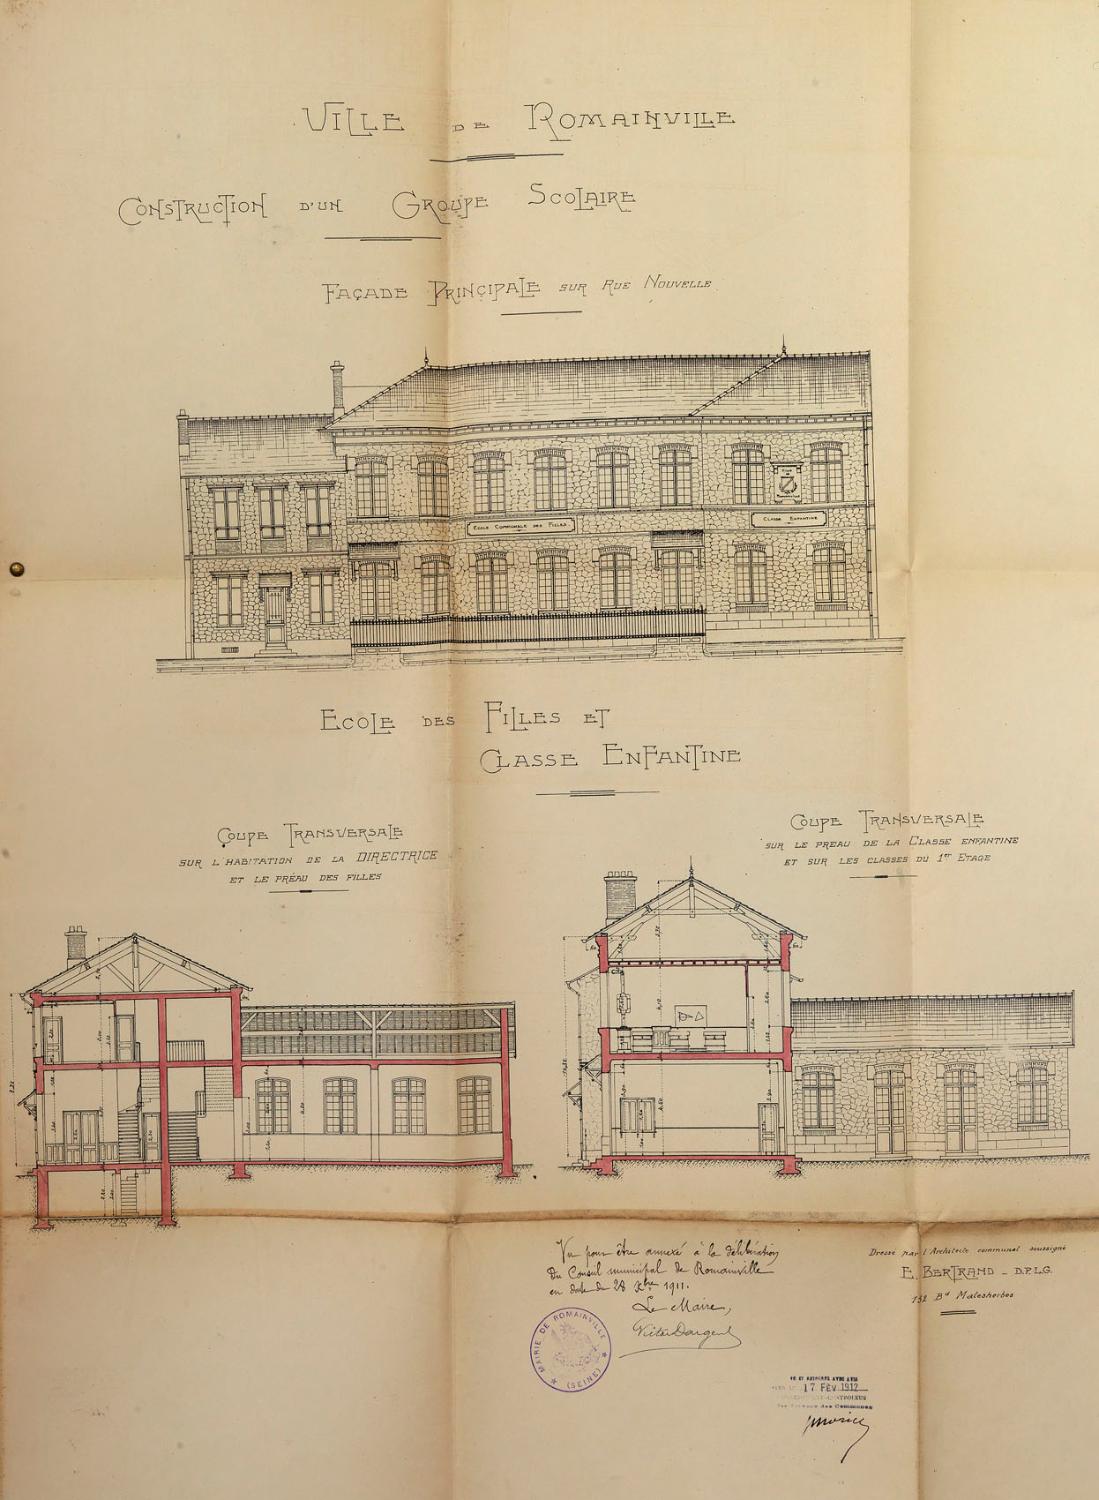 VILLE DE ROMAINVILLE
CONSTRUCTION D'UN GROUPE SCOLAIRE
FAÇADE PRINCIPALE SUR RUE NOUVELLE
ECOLE COMMUNALE DES FILLES
CLASSE ENFANTINE
ECOLE DES FILLES ET
CLASSE ENFANTINE
COUPE TRANSVERSALE
SUR L'HABITATION DE LA DIRECTRICE
ET LE PRÉAU DES FILLES
COUPE TRANSVERSALE
SUR LE PREAU DE LA CLASSE ENFANTINE
ET SUR LES CLASSES DU 1er ETAGE
Vu pour être annexé à la délibération
du Conseil municipal de Romainville
en date du 28 Xbre 1911.
Le Maire,
Victor Dargent
MAIRIE DE ROMAINVILLE
(SEINE)
Dressé par l'Architecte communal soussigné
E. BERTRAND - D.P.L.G.
132 Bd Malesherbes
17 FÉV 1912
des Communes